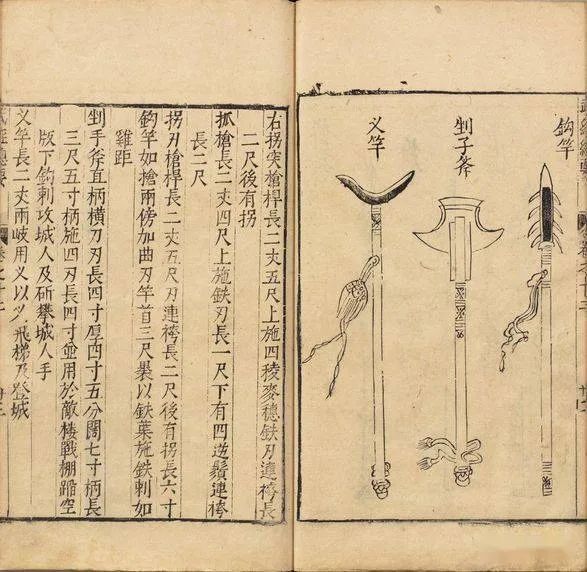 鈎竿
剉子斧
义竿
右拐突槍桿長二丈五尺上施四稜麥穗鉄刃連袴長
二尺後有拐
抓槍長二丈四尺上施鉄刃長一尺下有四逆鬚連袴
長二尺
拐刃槍桿長二丈五尺刃連袴長二尺後有拐長六寸
鈎竿如槍兩傍加曲刃竿首三尺裹以鉄葉施鉄刺如
雞距
剉手斧直柄橫刀刃長四寸厚四寸五分闊七寸柄長
三尺五寸柄施四刃長四寸並用於敵樓戰棚蹈空
版下鈎刺攻城人及斫攀城人手
义竿長二丈兩岐用义以义飛梯及登城
武經總要